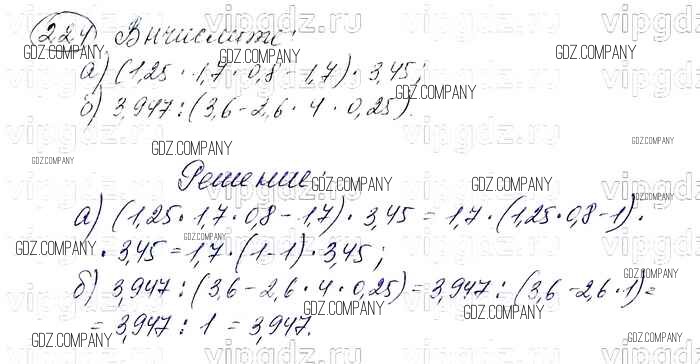 224. Вычислить:
а) (1,25 · 1,7 · 0,8 - 1,7) · 3,45;
б) 3,947 : (3,6 - 2,6 · 4 · 0,25).
Решение:
а) (1,25 · 1,7 · 0,8 - 1,7) · 3,45 = 1,7 · (1,25 · 0,8 - 1) ·
· 3,45 = 1,7 · (1-1) · 3,45;
б) 3,947 : (3,6 - 2,6 · 4 · 0,25) = 3,947 : (3,6 - 2,6 · 1) =
= 3,947 : 1 = 3,947.
vipgdz.ru
GDZ.COMPANY